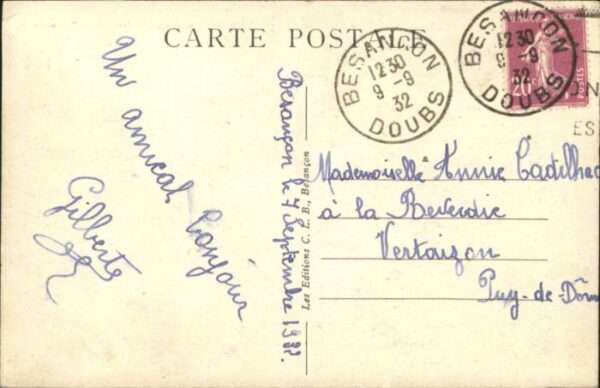 CARTE POSTALE
Un amical bonjour
Gilberte
Besançon le 7 Septembre 1932.
Les Editions C. L. B., Besançon
BESANCON
12 30
9 -9
32
DOUBS
BESANCON
12 30
9 -9
32
DOUBS
20c
POSTES
ES
Mademoiselle Annie Cadilhac
à la
Vertaizon
Puy-de-Dôm